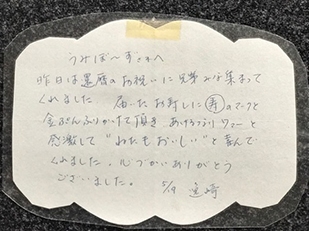 うみぼ〜ずさんへ
昨日は還暦のお祝いに兄弟みな集まって
くれました 届いたお刺しに寿のマークと
金ぷんふりかけて頂き あけるなりワァーと
感激して"わたもおいしい"と喜んで
くれました。心づかいありがとう
ございました。 5/9